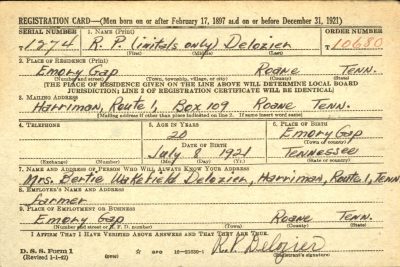 REGISTRATION CARD—(Men born on or after February 17, 1897 and on or before December 31, 1921)
SERIAL NUMBER 1. NAME (Print) ORDER NUMBER
T 1274 R. P. (initals only) Delozier T10680
(First) (Middle) (Last)
2. PLACE OF RESIDENCE (Print)
Emory Gap Roane Tenn.
(Number and street) (Town, township, village, or city) (County) (State)
[THE PLACE OF RESIDENCE GIVEN ON THE LINE ABOVE WILL DETERMINE LOCAL BOARD
JURISDICTION; LINE 2 OF REGISTRATION CERTIFICATE WILL BE IDENTICAL]
3. MAILING ADDRESS
Harriman, Route 1, Box 109 Roane Tenn.
[Mailing address if other than place indicated on line 2. If same insert word same]
4. TELEPHONE 5. AGE IN YEARS 6. PLACE OF BIRTH
20 Emory Gap
DATE OF BIRTH (Town or county)
July 8 1921 Tennessee
(Exchange) (Number) (Mo.) (Day) (Yr.) (State or country)
7. NAME AND ADDRESS OF PERSON WHO WILL ALWAYS KNOW YOUR ADDRESS
Mrs. Bertie Wakefield Delozier, Harriman, Route 1, Tenn
8. EMPLOYER'S NAME AND ADDRESS
Farmer
9. PLACE OF EMPLOYMENT OR BUSINESS
Emory Gap Roane Tenn.
(Number and street or R. F. D. number) (Town) (County) (State)
I AFFIRM THAT I HAVE VERIFIED ABOVE ANSWERS AND THAT THEY ARE TRUE.
D. S. S. Form 1 R. P. Delozier
(Revised 1-1-42) (over) (Registrant's signature)